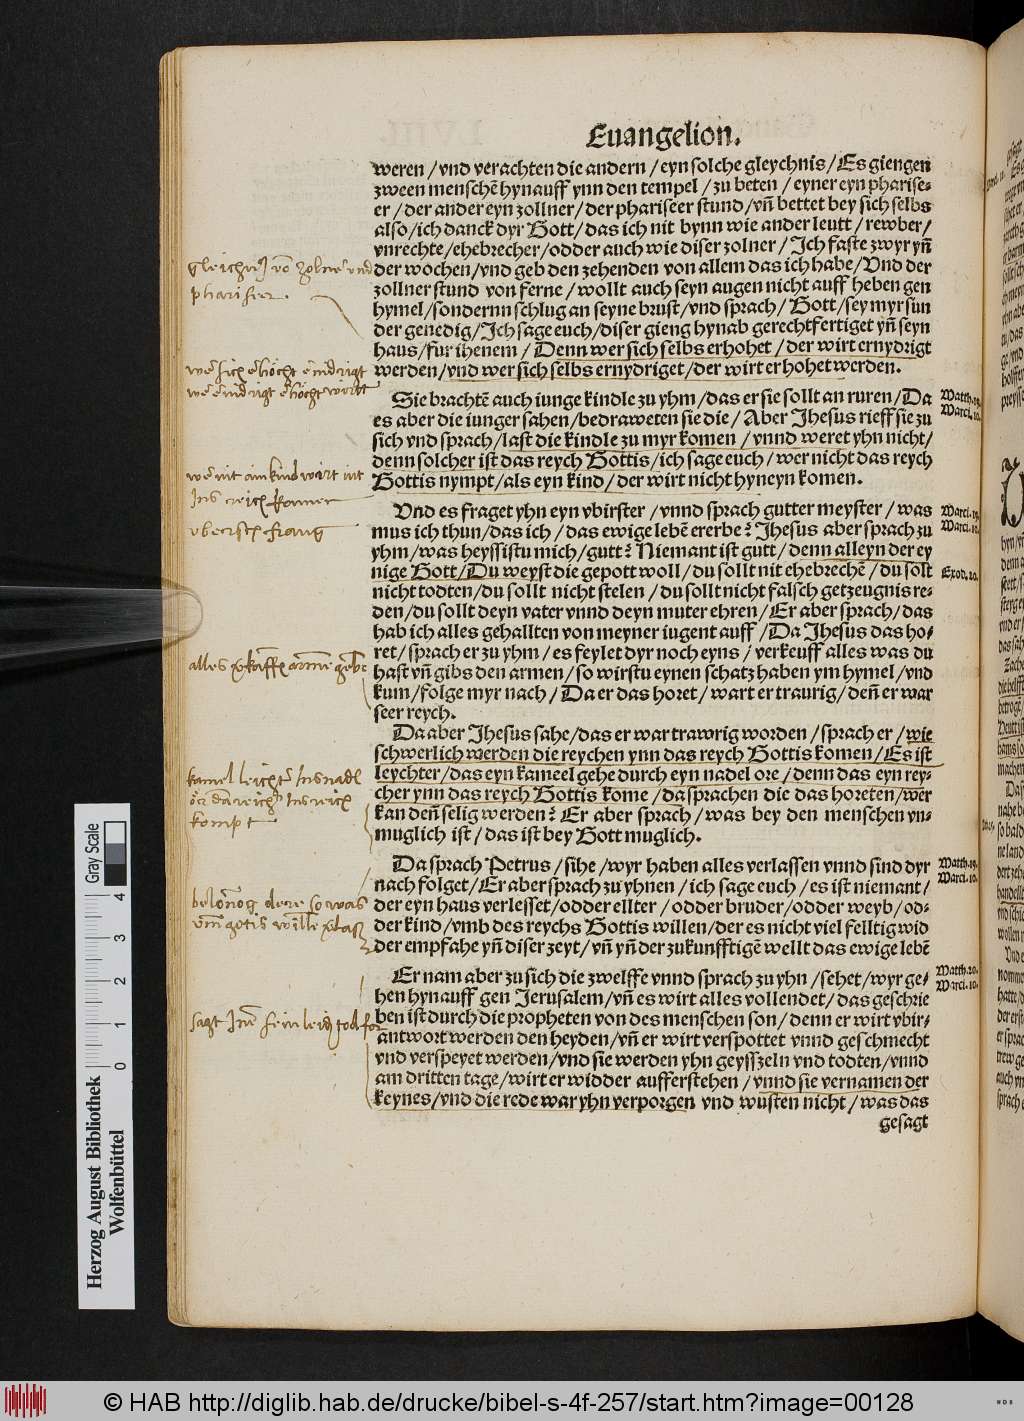 Euangelion.
weren / vnd verachten die andern / eyn solche gleychnis / Es giengen
zween menschē hynauff ynn den tempel / zu beten / eyner eyn pharise-
er / der ander eyn zollner / der phariseer stund / vñ bettet bey sich selbs
also / ich danck dyr Gott / das ich nit bynn wie ander leutt / rewber /
vnrechte / ehebrecher / odder auch wie diser zolner / Ich faste zwyr yñ
der wochen / vnd geb den zehenden von allem das ich habe / Vnd der
zollner stund von ferne / wollt auch seyn augen nicht auff heben gen
hymel / sondernn schlug an seyne brust / vnd sprach / Gott / sey myr sun
der genedig / Ich sage euch / diser gieng hynab gerechtfertiget yñ seyn
haus / fur ihenem / Denn wer sich selbs erhohet / der wirt ernydrigt
werden / vnd wer sich selbs ernydriget / der wirt erhohet werden.
gleichniß vō zolner vnd
phariseer.
wer sich erhöcht ernidrigt
wer ernidrigt erhöcht wirtt
Sie brachtē auch iunge kindle zu yhm / das er sie sollt an ruren / Da
es aber die iunger sahen / bedraweten sie die / Aber Jhesus rieff sie zu
sich vnd sprach / last die kindle zu myr komen / vnnd weret yhn nicht /
denn solcher ist das reych Gottis / ich sage euch / wer nicht das reych
Gottis nympt / als eyn kind / der wirt nicht hyneyn komen.
Matth. 19.
Marci. 10.
wer nit ain kind wirt nit
Ins reich komen
Vnd es fraget yhn eyn vbirster / vnnd sprach gutter meyster / was
mus ich thun / das ich / das ewige lebē ererbe? Jhesus aber sprach zu
yhm / was heyssistu mich / gutt? Niemant ist gutt / denn alleyn der ey
nige Gott / Du weyst die gepott woll / du sollt nit ehebrechē / du solt
nicht todten / du sollt nicht stelen / du sollt nicht falsch getzeugnis re-
den / du sollt deyn vater vnnd deyn muter ehren / Er aber sprach / das
hab ich alles gehallten von meyner iugent auff / Da Jhesus das ho-
ret / sprach er zu yhm / es feylet dyr noch eyns / verkeuff alles was du
hast vñ gibs den armen / so wirstu eynen schatz haben ym hymel / vnd
kum / folge myr nach / Da er das horet / wart er traurig / deñ er war
seer reych.
Marci. 19.
Marci. 10.
Exod. 20.
vbersten frang
alles verkaffē armē gebē
Da aber Jhesus sahe / das er war trawrig worden / sprach er / wie
schwerlich werden die reychen ynn das reych Gottis komen / Es ist
leychter / das eyn kameel gehe durch eyn nadel ore / denn das eyn rey-
cher ynn das reych Gottis kome / da sprachen die das horeten / wer
kan deñ selig werden? Er aber sprach / was bey den menschen vn-
muglich ist / das ist bey Gott muglich.
kamel leichter Ins nadl
ör dan reicher Ins reich
kompt
Da sprach Petrus / sihe / wyr haben alles verlassen vnnd sind dyr
nach folget / Er aber sprach zu yhnen / ich sage euch / es ist niemant /
der eyn haus verlesset / odder ellter / odder bruder / odder weyb / od-
der kind / vmb des reychs Gottis willen / der es nicht viel felltig wid
der empfahe yñ diser zeyt / vñ yñ der zukunfftigē wellt das ewige lebē
Matth. 19.
Marci. 10.
belonung dere so was
vm gotis wille verlasz
Er nam aber zu sich die zwelffe vnnd sprach zu yhn / sehet / wyr ge-
hen hynauff gen Jerusalem / vñ es wirt alles vollendet / das geschrie
ben ist durch die propheten von des menschen son / denn er wirt vbir-
antwort werden den heyden / vñ er wirt verspottet vnnd geschmecht
vnd verspeyet werden / vnd sie werden yhn geysszeln vnd todten / vnnd
am dritten tage / wirt er widder aufferstehen / vnnd sie vernamen der
keynes / vnd die rede war yhn verporgen vnd wusten nicht / was das
gesagt
Matth. 20.
Marci. 10.
sagt Inē sein leidē tod for
Gray Scale
4
3
2
1
0
Herzog August Bibliothek
Wolfenbüttel
© HAB http://diglib.hab.de/drucke/bibel-s-4f-257/start.htm?image=00128